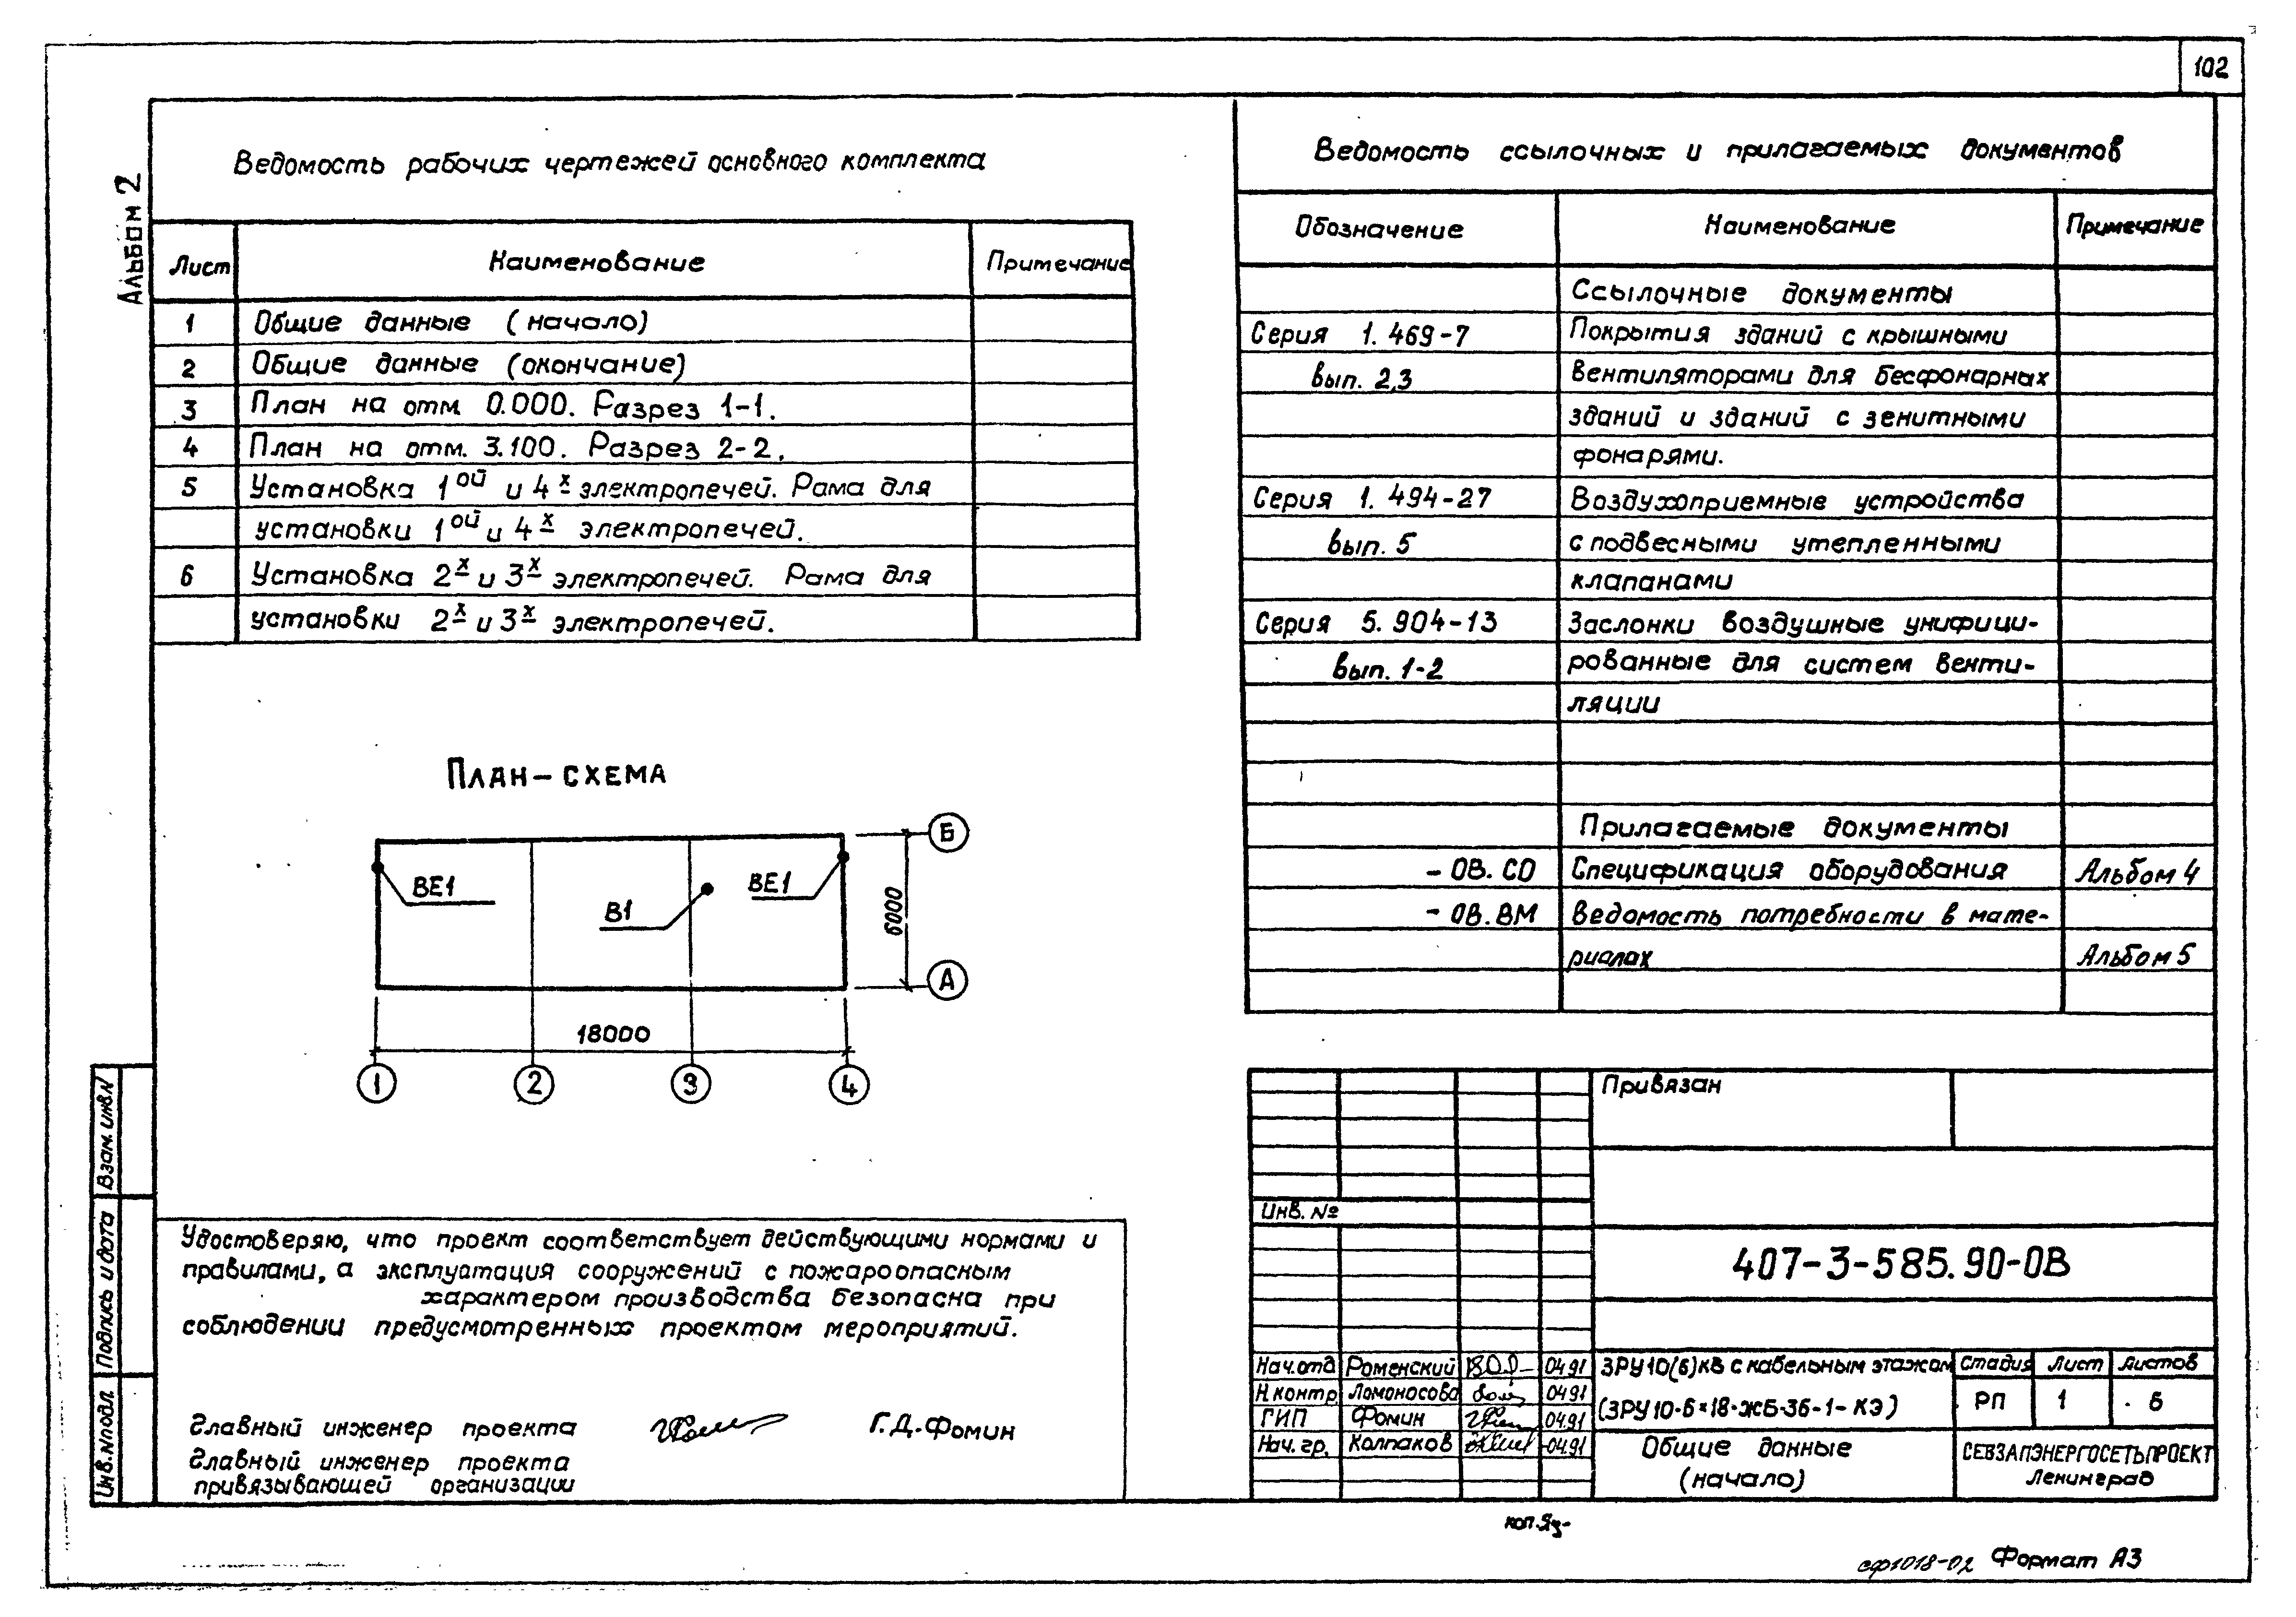 102
Альбом 2
Ведомость рабочих чертежей основного комплекта
Лист Наименование Примечание
1 Общие данные (начало)
2 Общие данные (окончание)
3 План на отм. 0.000. Разрез 1-1.
4 План на отм. 3.100. Разрез 2-2.
5 Установка 1ой и 4х электропечей. Рама для
установки 1ой и 4х электропечей.
6 Установка 2х и 3х электропечей. Рама для
установки 2х и 3х электропечей.
План-схема
ВЕ1
В1
ВЕ1
Б
6000
А
18000
1 2 3 4
Удостоверяю, что проект соответствует действующими нормами и
правилами, а эксплуатация сооружений с пожароопасным
характером производства безопасна при
соблюдении предусмотренных проектом мероприятий.
Главный инженер проекта Г.Д. Фомин
Главный инженер проекта
привязывающей организации
Взам. инв.N
Подпись и дата
Инв.Nподл
Ведомость ссылочных и прилагаемых документов
Обозначение Наименование Примечание
Ссылочные документы
Серия 1.469-7 Покрытия зданий с крышными
вып. 2,3 вентиляторами для бесфонарных
зданий и зданий с зенитными
фонарями.
Серия 1.494-27 Воздухоприемные устройства
вып. 5 с подвесными утепленными
клапанами
Серия 5.904-13 Заслонки воздушные унифици-
вып. 1-2 рованные для систем венти-
ляции
Прилагаемые документы
- ОВ.СО Спецификация оборудования Альбом 4
- ОВ.ВМ Ведомость потребности в мате-
риалах Альбом 5
Привязан
Инв. №
407-3-585.90-ОВ
Нач.отд Роменский 04.91
Н.контр. Ломоносова 04.91
ГИП Фомин 04.91
Нач. гр. Колпаков 04.91
ЗРУ10(6)кВ с кабельным этажом
(ЗРУ10-6×18-ЖБ-36-1-КЭ)
Стадия Лист Листов
РП 1 6
Общие данные
(начало)
СЕВЗАПЭНЕРГОСЕТЬПРОЕКТ
Ленинград
коп.
сф1018-02 Формат А3